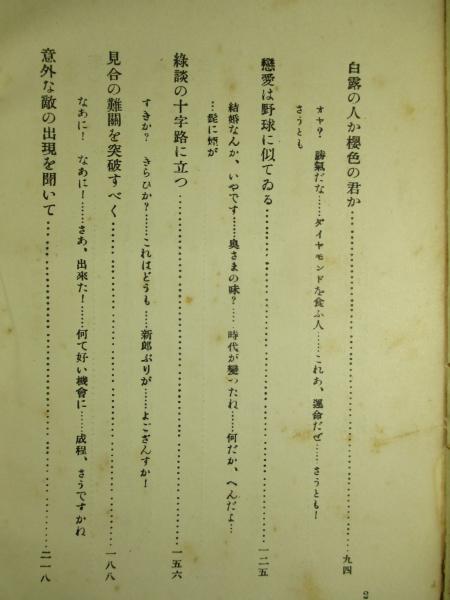 白露の人か櫻色の君か……………………九四
オヤ? 勝氣だな……ダイヤモンドを食ふ人……これあ、運命だぜ……さうとも!
さうとも
戀愛は野球に似てゐる……………………一二五
結婚なんか、いやです……奥さまの味?……時代が變つたね……何だか、へんだよ…
…髭に煙が
綠談の十字路に立つ……………………一五六
すきか? きらひか?……これはどうも……新郎ぶりが……よござんすか!
見合の難關を突破すべく……………………一八八
なあに! なあに!……さあ、出來た!……何て好い機會に……成程、さうですかね
意外な敵の出現を聞いて……………………二一八
2